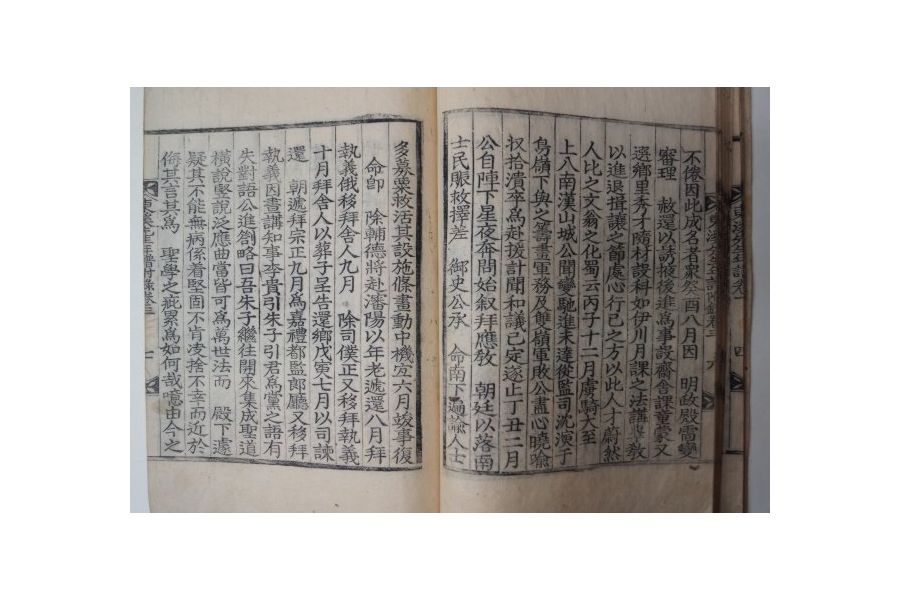 不倦因此成名者衆然酉八月因　明政殿雷變
審理　赦還以誘掖後進爲事設齋會課童蒙又
選鄉里秀才隨材設科如伊川月課之法講學教
以進退揖讓之節處心行已之方以此人才蔚然
人比之文翁之化蜀云丙子十二月虜騎大至
上入南漢山城公聞變馳進未達從監司沈演于
鳥嶺下與之籌畫軍務及雙嶺軍敗公盡心曉喩
収拾潰卒爲赴援計聞和議已定遂止丁丑二月
公自陣下星夜奔問始叙拜應敎　朝廷以落南
士民賑救擇差　御史公承　命南下遍諭人士
多募粟救活其設施條畫動中機宜六月竣事復
命卽　除輔德將赴瀋陽以年老遞還八月拜
執義俄移拜舍人九月　除司僕正又移拜執義
十月拜舍人以葬子呈告還鄉戊寅七月以司諫
還　朝遞拜宗正九月爲嘉禮都監郎廳又移拜
執義因書講知事李貴引朱子引君爲黨之語有
失對語公進劄略曰吾朱子繼往開來集成聖道
橫說竪說泛應曲當皆可爲萬世法而　殿下遽
疑其不能無病係着堅固不肯凌捨不幸而近於
侮其言其爲　聖學之疵累爲如何哉噫由今之